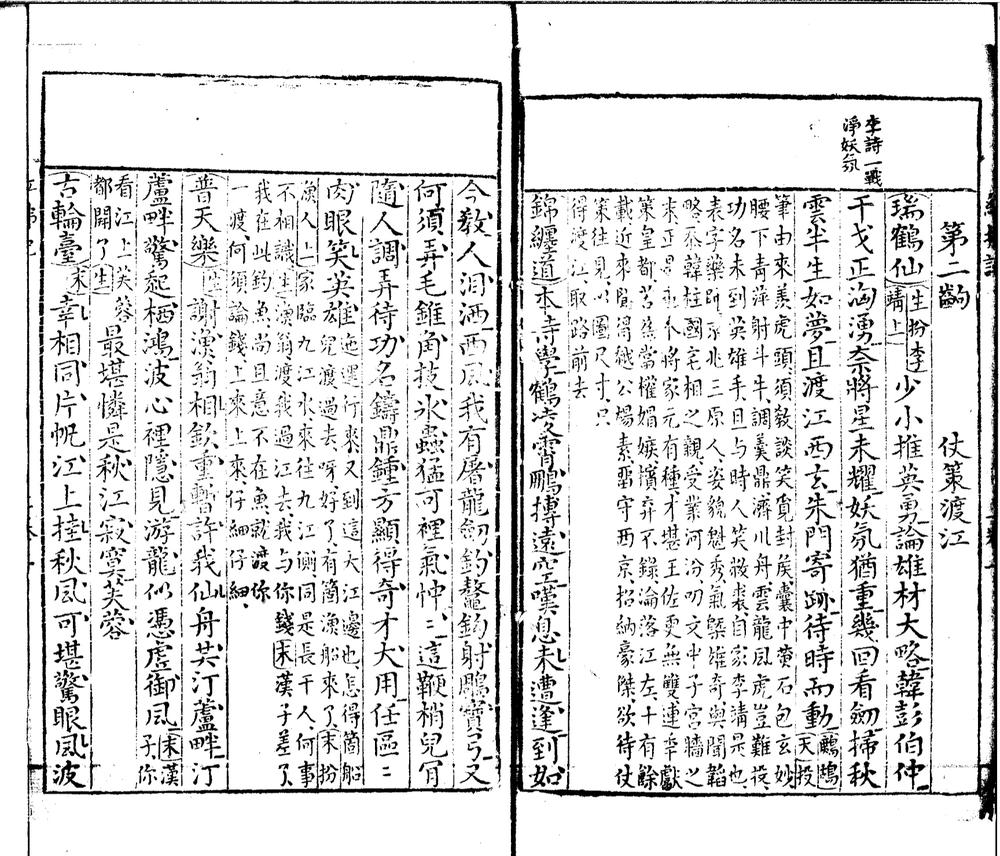 李詩一戰
淨妖氛
第二齣 仗策渡江
瑞鶴仙 生扮李靖上 少小推英勇論雄材大略韓彭伯仲
干戈正洶湧奈將星未耀妖氛猶重幾回看劒掃秋
雲半生如夢且渡江西玄朱門寄跡待時而動 鷓鴣天
筆由來羨虎頭須教談笑覓封侯囊中黃石包玄妙
腰下青萍射斗牛調羹鼎濟川舟雲龍風虎豈難投
功名未到英雄手且与時人笑敝裘自家李靖是也
表字藥師京兆三原人姿貌魁秀氣槩雄奇與聞韜
略忝韓柱國宅相之親受業河汾叨文中子宮牆之
來正是將家元有種才堪王佐更無雙連年獻
策皇都苦當權媢嫉擯弃不錄淪落江左十有餘
載近來聞得越公楊素留守西京招納豪傑欲待仗
策往見以圖尺寸只
得渡江取路前去
錦纏道 本待學鶴凌霄鵬摶遠空嘆息未遭逢到如
今教人淚洒西風我有屠龍劒釣鰲鈎射鵰寶弓又
何須弄毛錐角技氷蟲猛可裡氣忡〻這鞭梢兒肎
隨人調弄待功名鑄鼎鍾方顯得奇才大用任區〻
肉眼笑英雄 迤邐行來又到這大江邊也怎得箇船
兒渡過去呀好了有箇漁船來了 末扮
漁人上 家臨九江水來往九江側同是長干人何事
不相識 生 漁翁渡我過江去我与你錢 末 漢子差了
我在此釣魚尚且意不在魚就渡你
一渡何須論錢上來上來仔細仔細
普天樂 生 謝漁翁相欽重暫許我仙舟共汀蘆畔汀
蘆畔驚起栖鴻波心裡隱見游龍似憑虛御風 末 漢子你
看江上芙蓉
都開了 生 最堪憐是秋江寂寞芙蓉
古輪臺 末 幸相同片帆江上挂秋風可堪驚眼風波